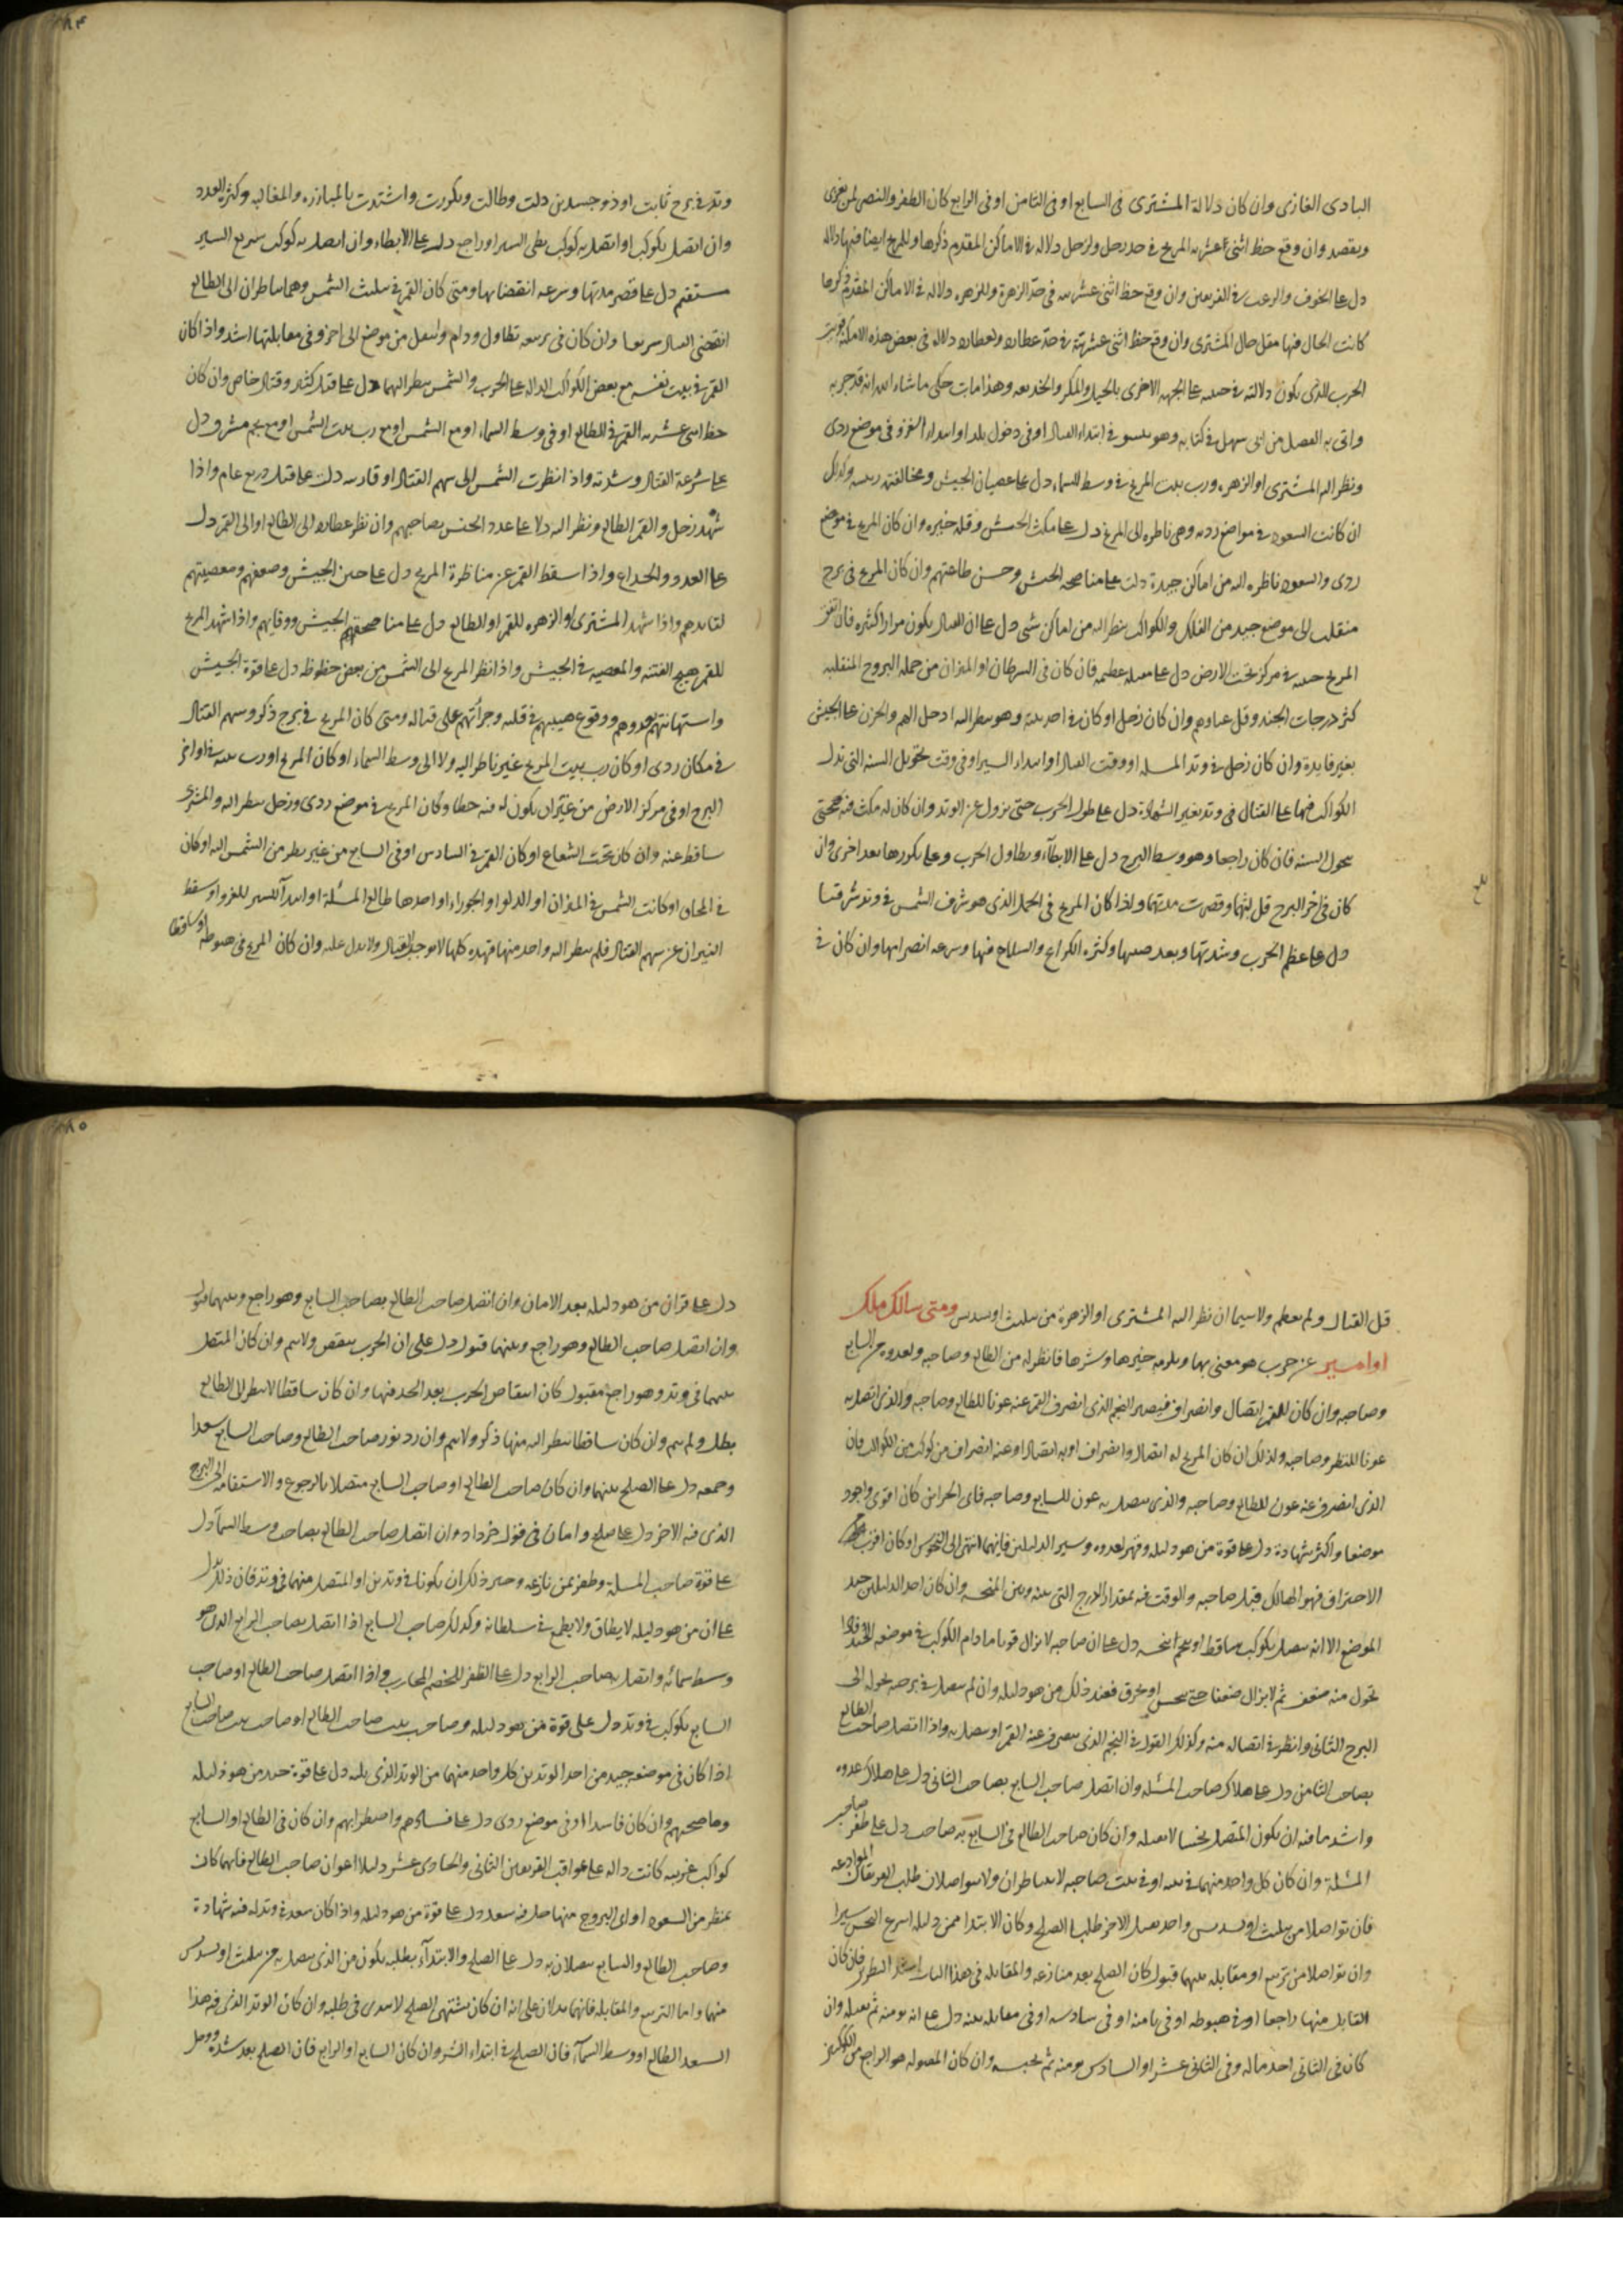 البادى الغازى وان كان دلالة المشترى فى السابع او فى الثامن او فى الرابع كان الظفر والنصر لمن يغزى
ويقصد وان وقع حظ اثنى عشريه المريخ فى حد زحل ولزحل دلاله فى الاماكن المقدم ذكرها وللمريخ ايضا فيها دلاله
دل على الخوف والرعب فى الفريقين وان وقع حظ اثنى عشريته فى حد الزهرة وللزهره دلاله فى الاماكن المقدم ذكرها
كانت الحال فيها مثل حال المشترى وان وقع حظ اثنى عشريته فى حد عطارد ولعطارد دلاله فى بعض هذه الامكنه
الحرب للذى يكون دلالته فى على الجهه الاخرى بالحيل والمكر والخديعه وهذا مات حكى ما شاء الله انه قد جربه
واتى به الفضل من ابى سهل فى كتابه وهو فى ابتداء القتال او فى دخول بلد او ابتداء الغزو فى موضع ردى
ونظر اليه المشترى او الزهره ورب بيت المريخ فى وسط السماء دل على عصيان الجيش ومخالفته وكذلك
ان كانت السعود فى مواضع رديه وهى ناظره الى المريخ دل على مكث الجيش وقله خيره وان كان المريخ فى موضع
ردى والسعود ناظره اليه من اماكن جيدة دلت على مناصحه الجيش وحسن طاعتهم وان كان المريخ فى برج
منقلب الى موضع جيد من الفلك والكواكب ينظر اليه من اماكن شتى دل على ان القتال يكون مرارا كثيره فان
المريخ فى مركز تحت الارض دل على عظيمه فان كان فى السرطان او الميزان من جمله البروج المنقلبه
كثر درجات الجند وقل عناوهم وان كان زحل او كان فى احد بيته وهو ينظر اليه ادخل الهم والحزن على الجيش
بغير فايدة وان كان زحل فى وتد المسله او وقت القتال او ابتداء السير او فى وقت تحويل السنه التى تدل
الكواكب فيها على القتال فى وتد بغير الشهادة دل على طول الحرب حتى يزول عن الوتد وان كان له مكث فيه فحتى
تحول السنه فان كان راجعا وهو وسط البرج دل على الابطآء وتطاول الحرب وعلى تكورها بعد اخرى وان
كان فى اخر البرج قل لبثها وقصرت مدتها واذا كان المريخ فى الحمل الذى هو شرف الشمس فى وتد شرقيا
دل على عظم الحرب وشدتها وبعد صيتها وكثره الكراع والسلاح فيها وسرعه انصرامها وان كان فى
وتد فى برج ثابت او ذو جسدين دلت وطالت وتكررت واشتدت بالمبارزه والمغالبه وكثرة العدد
وان اتصل بكوكب او اتصل به كوكب بطى السير او راجع دل على الابطاء وان اتصل به كوكب سريع السير
مستقيم دل على قصر مدتها وسرعه انقضايها ومتى كان القمر فى تثليث الشمس وهما ناظران الى الطالع
انقضى القتال سريعا وان كان فى تربيعه تطاول ودام وانتقل من موضع الى اخر وفى مقابلتها اشد واذا كان
القمر فى بيت نفسه مع بعض الكواكب الداله على الحرب والشمس ينظر اليهما دل على قتل كثير وقتال خاص وان كان
حظ اثنى عشريه القمر فى الطالع او فى وسط السماء او مع الشمس او مع رب بيت الشمس او مع نجم مشرق دل
على سرعة القتال وشدته واذا نظرت الشمس الى سهم القتال او قارنه دلت على قتل ذريع عام واذا
شهد زحل والقمر الطالع ونظر اليه دلا على عدد الجيش بصاحبهم وان نظر عطارد الى الطالع او الى القمر دل
على العدو والخداع واذا سقط القمر عن مناظرة المريخ دل على جبن الجيش وضعفهم ومعصيتهم
لقايدهم واذا شهد المشترى او الزهره للقمر او الطالع دل على مناصحتهم الجيش ووفايهم واذا شهد المريخ
للقمر هيج الفتنه والمعصيه فى الجيش واذا نظر المريخ الى الشمس من بعض حظوظه دل على قوة الجيش
واستهانتهم بعدوهم ووقوع هيبتهم فى قلبه وجرأتهم على قتاله ومتى كان المريخ فى برج ذكر وسهم القتال
فى مكان ردى او كان رب بيت المريخ غير ناظر اليه ولا الى وسط السماء او كان المريخ او رب بيته فى اواخر
البرج او فى مركز الارض من غير ان يكون له فيه حظ وكان المريخ فى موضع ردى وزحل ينظر اليه والمشترى
ساقط عنه وان كان تحت الشعاع او كان القمر فى السادس او فى السابع من غير نظر من الشمس اليه او كان
فى المحاق او كانت الشمس فى الميزان او الدلو او الجوزاء او احدها طالع المسئلة او ابتدآ السير للغزو او سقط
النيران عن سهم القتال فلم ينظر اليه واحد منها فهذه كلها لا توجب القتال ولا تدل عليه وان كان المريخ فى هبوطه او ساقطا
قل القتال ولم يعظم ولا سيما ان نظر اليه المشترى او الزهرة من تثليث او تسديس ومتى سالك ملك
او امير عن حرب هو معنى بها ويلزمه خيرها وشرها فانظر له من الطالع وصاحبه ولعدوه من السابع
وصاحبه وان كان للقمر اتصال وانصراف فيصير النجم الذى انصرف القمر عنه عونا للطالع وصاحبه والذى اتصل به
عونا للنظير وصاحبه وكذلك ان كان المريخ له اتصال وانصراف او به اتصال او عنه انصراف من كوكب من الكواكب فان
الذى انصرف عنه عون للطالع وصاحبه والذى يتصل به عون للسابع وصاحبه فاى الحزبين كان اقوى واجود
موضعا واكثر شهادة دل على قوة من هو دليله وقهره لعدوه وسير الدليلين فايهما انتهى الى النحوس او كان اقرب
الاحتراق فهو الهالك قبل صاحبه والوقت فيه بمقدار الدرج التى بينه وبين المنحسه وان كان احد الدليلين جيد
الموضع الا انه يتصل بكوكب ساقط او نجم نحس دل على ان صاحبه لا يزال قويا ما دام الكوكب فى موضعه الجيد
تحول منه ضعف ثم لا يزال ضعيفا حتى ينحس او يحرق فعند ذلك من هو دليله وان لم يتصل فى برجه تحوله الى
البرج الثانى وانظر فى اتصاله منه وكذلك القول فى النجم الذى ينصرف عنه القمر او يتصل به واذا اتصل صاحب الطالع
بصاحب الثامن دل على هلاك صاحب المسئله وان اتصل صاحب السابع بصاحب الثانى دل على هلاك عدوه
واشد ما فيه ان يكون المتصل نحسا لا يقبله وان كان صاحب الطالع فى السابع به صاحب دل على ظفر صاحب
المسئلة وان كان كل واحد منهما فى بيته او فى بيت صاحبه لا يتناظران ولا يتواصلان طلب الفريقان الموادعه
فان تواصلا من تثليث او تسديس واحد يقبل الاخر طلبا الصلح وكان الابتدا ممن دليله اسرع سيرا
وان تواصلا من تربيع او مقابله بينهما قبول كان الصلح بعد منازعه والمقابله فى هذا الباب اشد النظر فان كان
القابل منهما راجعا او فى هبوطه او فى ثامنه او فى سادسه او فى مقابله بيته دل على انه يومنه ثم يقتله وان
كان فى الثانى اخذ ماله وفى الثانى عشر او السادس يومنه ثم يحبسه وان كان المقبول هو الراجع من الكوكبين
دل على فرار من هو دليله بعد الامان وان اتصل صاحب الطالع بصاحب السابع وهو راجع وبينهما قبول
وان اتصل صاحب الطالع وهو راجع وبينهما قبول دل على ان الحرب ينقص ولا يتم وان كان المتصل
بينهما فى وتد وهو راجع مقبول كان انتقاض الحرب بعد الجد فيها وان كان ساقطا لا ينظر الى الطالع
بطل ولم يتم وان كان ساقطا ينظر اليه منها ذكر ولا يتم وان رد نور صاحب الطالع وصاحب السابع سعدا
وجمعه دل على الصلح بينهما وان كان صاحب الطالع او صاحب السابع متصلا بالرجوع والاستقامه الى البرج
الذى فيه الاخر دل على صلح وامان فى قول خرداد وان اتصل صاحب الطالع بصاحب وسط السمآ دل
على قوة صاحب المسله وظفره بمن نازعه وخير ذلك ان يكونا فى وتدين او المتصل منهما فى وتد فان ذلك يدل
على ان من هو دليله لا يطاق ولا يطمع فى سلطانه وكذلك صاحب السابع اذا اتصل بصاحب الرابع الذى هو
وسط سمائه واتصل بصاحب الرابع دل على الظفر للخصم المحارب واذا اتصل صاحب الطالع او صاحب
السابع بكوكب فى وتد دل على قوة من هو دليله وصاحب بيت صاحب الطالع او صاحب بيت صاحب السابع
اذا كان فى موضع جيد من احد الوتدين كل واحد منهما من الوتد الذى يليه دل على قوة جند من هو دليله
ومناصحتهم وان كان فاسدا او فى موضع ردى دل على فسادهم واضطرابهم وان كان فى الطالع او السابع
كواكب غريبه كانت داله على عواقب الفريقين الثانى والحادى عشر دليلا اعوان صاحب الطالع فايهما كان
بمنظر من السعود او اى البروج منها حل فيه سعد دل على قوة من هو دليله واذا كان سعد فى وتد له فيه شهادة
وصاحب الطالع والسابع يتصلان به دل على الصلح والابتدآء بطلبه يكون من الذى يتصل به من تثليث او تسديس
منهما واما التربيع والمقابله فانهما يدلان على انه ان كان يشتهى الصلح لا يبتدى فى طلبه وان كان الوتد الذى فيه هذا
السعد الطالع او وسط السمآء فان الصلح فى ابتداء الشر وان كان السابع او الرابع فان الصلح بعد شده